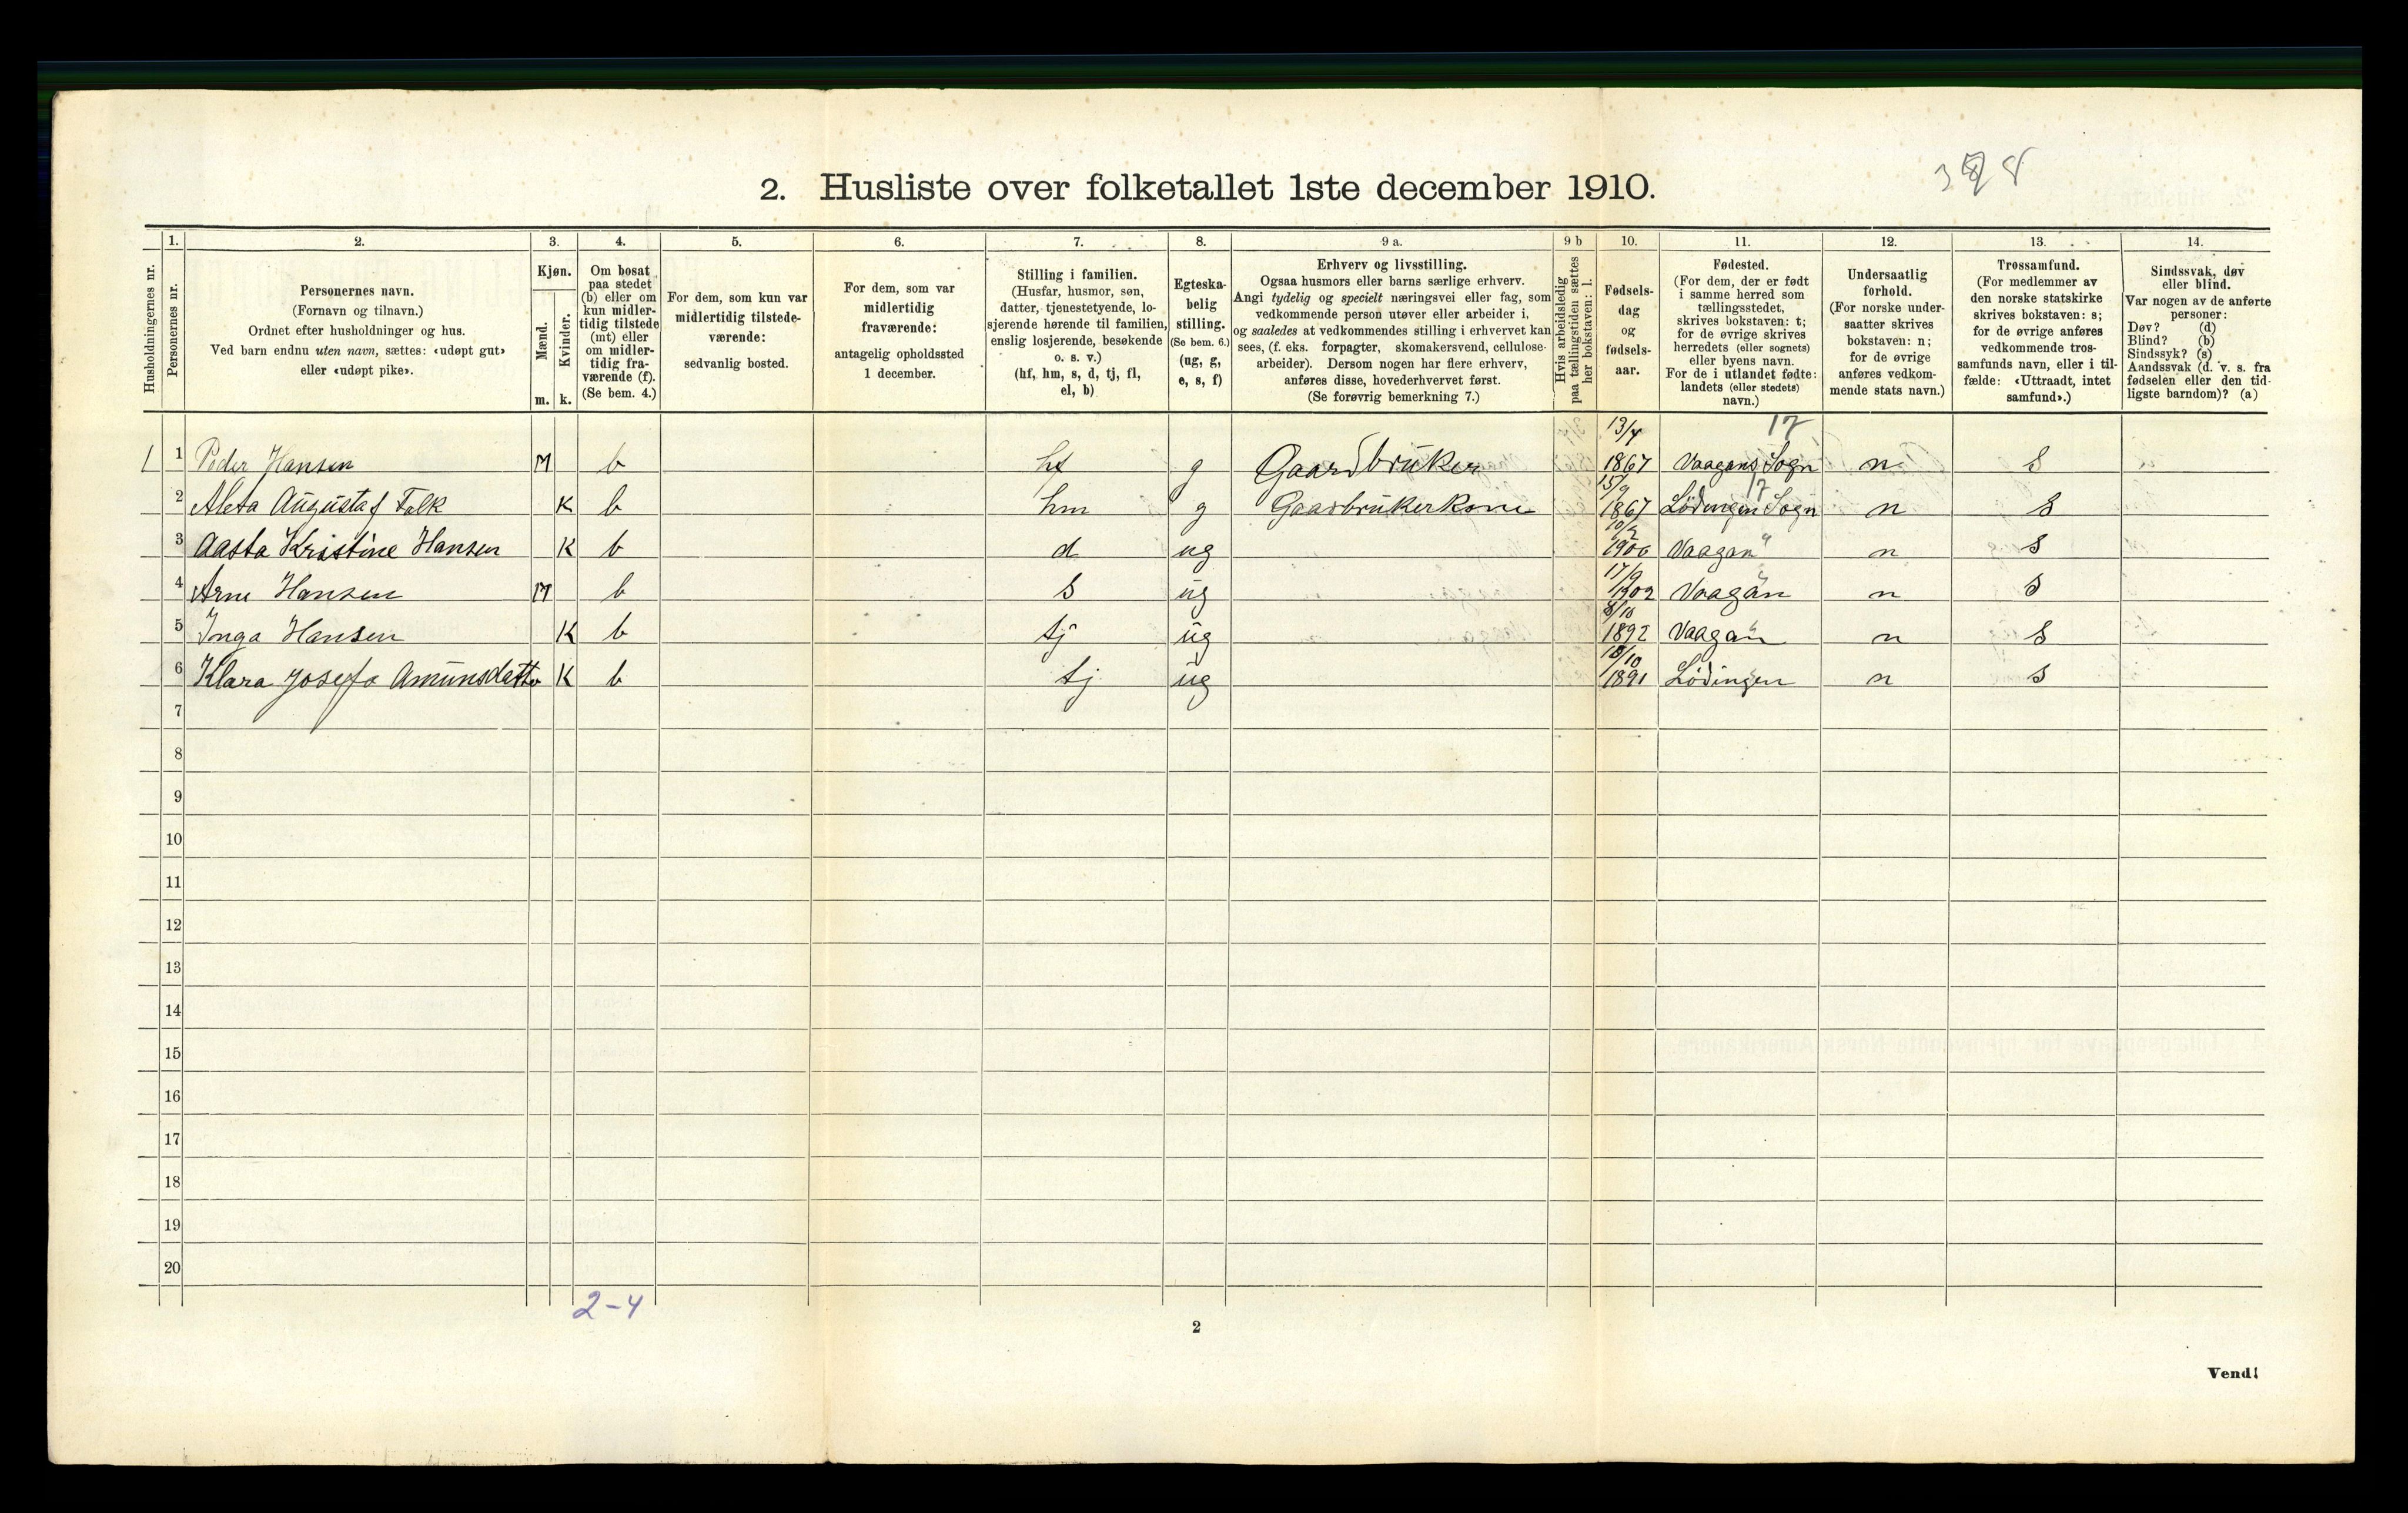 2. Husliste over folketallet 1ste december 1910.
Husholdningernes nr.
1.
Personernes nr.
2.
Personernes navn.
(Fornavn og tilnavn.)
Ordnet efter husholdninger og hus.
Ved barn endnu uten navn, sættes: «udøpt gut»
eller «udøpt pike».
3.
Kjøn.
Mænd.
Kvinder.
m. k.
4.
Om bosat
paa stedet
(b) eller om
kun midler-
tidig tilstede
(mt) eller
om midler-
tidig fra-
værende (f).
(Se bem. 4.)
5.
For dem, som kun var
midlertidig tilstede-
værende:
sedvanlig bosted.
6.
For dem, som var
midlertidig
fraværende:
antagelig opholdssted
1 december.
7.
Stilling i familien.
(Husfar, husmor, søn,
datter, tjenestetyende, lo-
sjerende hørende til familien,
enslig losjerende, besøkende
o. s. v.)
(hf, hm, s, d, tj, fl,
el, b)
8.
Egteska-
belig
stilling.
(Se bem. 6.)
(ug, g,
e, s, f)
9 a.
Erhverv og livsstilling.
Ogsaa husmors eller barns særlige erhverv.
Angi tydelig og specielt næringsvei eller fag, som
vedkommende person utøver eller arbeider i,
og saaledes at vedkommendes stilling i erhvervet kan
sees, (f. eks. forpagter, skomakersvend, cellulose-
arbeider). Dersom nogen har flere erhverv,
anføres disse, hovederhvervet først.
(Se forøvrig bemerkning 7.)
9 b
Hvis arbeidsledig
paa tællingstiden sættes
her bokstaven: l.
10.
Fødsels-
dag
og
fødsels-
aar.
11.
Fødested.
(For dem, der er født
i samme herred som
tællingsstedet,
skrives bokstaven: t;
for de øvrige skrives
herredets (eller sognets)
eller byens navn.
For de i utlandet fødte:
landets (eller stedets)
navn.)
12.
Undersaatlig
forhold.
(For norske under-
saatter skrives
bokstaven: n;
for de øvrige
anføres vedkom-
mende stats navn.)
13.
Trossamfund.
(For medlemmer av
den norske statskirke
skrives bokstaven: s;
for de øvrige anføres
vedkommende tros-
samfunds navn, eller i til-
fælde: «Uttraadt, intet
samfund».)
14.
Sindssvak, døv
eller blind.
Var nogen av de anførte
personer:
Døv? (d)
Blind? (b)
Sindssyk? (s)
Aandssvak (d. v. s. fra
fødselen eller den tid-
ligste barndom)? (a)
13/4 17
1 1 Peder Hansen M b hf g Gaardbruker 1867 Vaagans Sogn n s
15/9 17
2 Aleta Augusta f Falk K b hm g Gaarbrukerkone 1867 Lødingen Sogn n s
10/2
3 Aasta Kristine Hansen K b d ug 1900 Vaagan n s
17/9
4 Arne Hansen M b s ug 1902 Vaagan n s
8/10
5 Inga Hansen K b tj ug 1892 Vaagan n s
10/10
6 Klara Josefa Amunsdatter K b tj ug 1891 Lødingen n s
7
8
9
10
11
12
13
14
15
16
17
18
19
20
2-4
2
Vend!